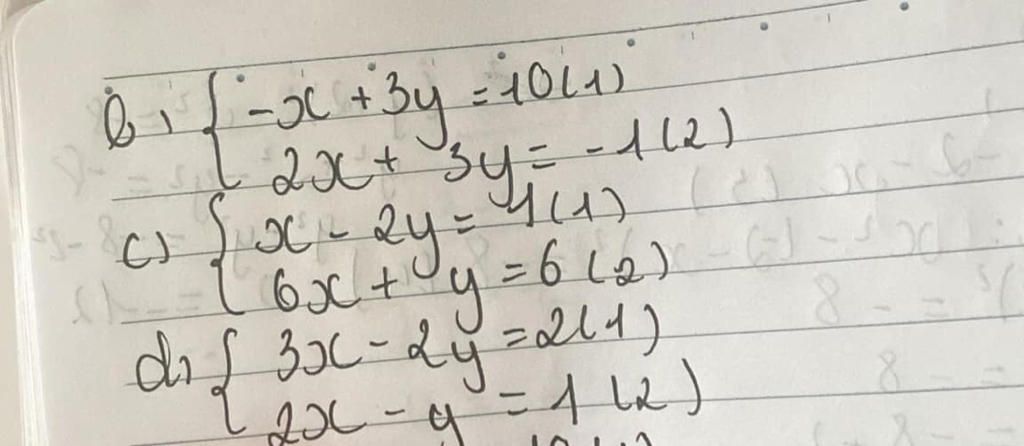 b, { -x + 3y = 10 (1)
2x + 3y = -1 (2)
c) { x - 2y = 1 (1)
6x + y = 6 (2)
d, { 3x - 2y = 2 (1)
2x - y = 1 (2)